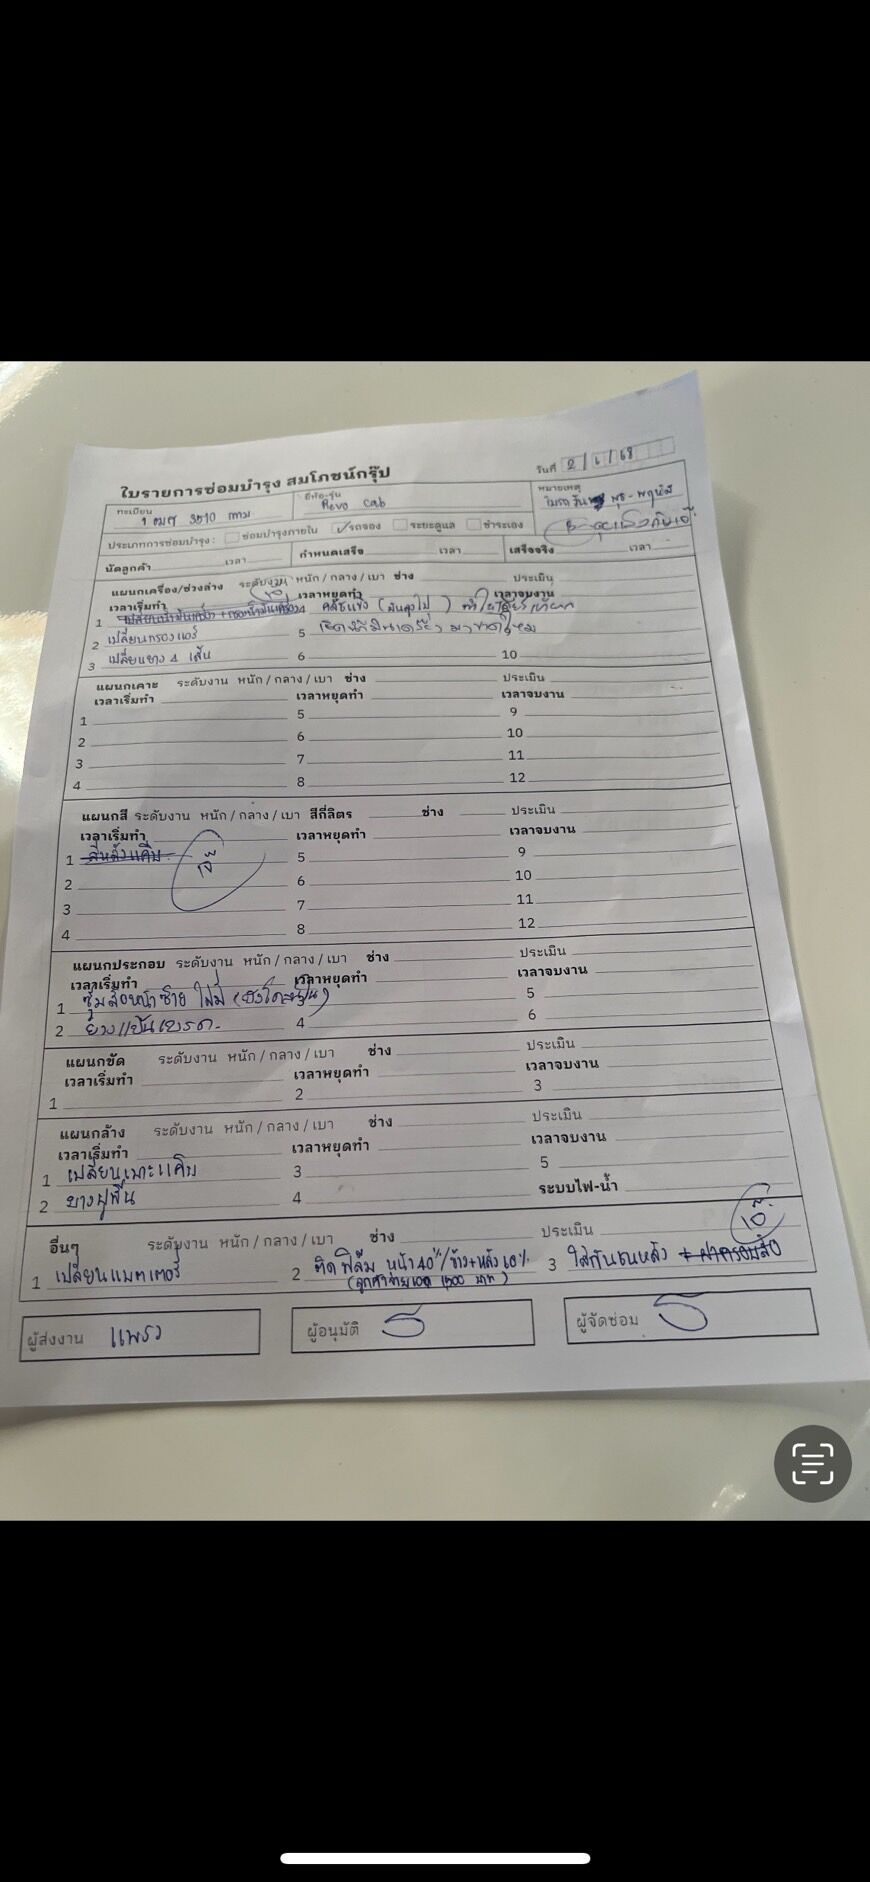 ใบรายการซ่อมบำรุง สมโภชน์กรุ๊ป
วันที่ 2/6/68
ทะเบียน 3510 กทม
ยี่ห้อ-รุ่น Revo Cab
หมายเหตุ พุธ-พฤหัส
ประเภทการซ่อมบำรุง : ซ่อมบำรุงภายใน ✓รถจอง ระยะดูแล ชำระเอง
นัดลูกค้า เวลา กำหนดเสร็จ เวลา เสร็จจริง เวลา
แผนกเครื่อง/ช่วงล่าง ระดับงาน หนัก / กลาง / เบา ช่าง ประเมิน
เวลาเริ่มทำ เวลาหยุดทำ เวลาจบงาน
1 เปลี่ยนน้ำมันเครื่อง + กรองน้ำมันเครื่อง 4 คลัชแข็ง
2 เปลี่ยนกรองแอร์ 5
3 เปลี่ยนยาง 4 เส้น 6 10
แผนกเคาะ ระดับงาน หนัก / กลาง / เบา ช่าง ประเมิน
เวลาเริ่มทำ เวลาหยุดทำ เวลาจบงาน
1 5 9
2 6 10
3 7 11
4 8 12
แผนกสี ระดับงาน หนัก / กลาง / เบา สีกี่ลิตร ช่าง ประเมิน
เวลาเริ่มทำ เวลาหยุดทำ เวลาจบงาน
1 สีหลังแค็บ 5 9
2 6 10
3 7 11
4 8 12
แผนกประกอบ ระดับงาน หนัก / กลาง / เบา ช่าง ประเมิน
เวลาเริ่มทำ เวลาหยุดทำ เวลาจบงาน
1 ซุ้มล้อหน้าซ้าย 3 5
2 ยางแป้นเบรค 4 6
แผนกขัด ระดับงาน หนัก / กลาง / เบา ช่าง ประเมิน
เวลาเริ่มทำ เวลาหยุดทำ เวลาจบงาน
1 2 3
แผนกล้าง ระดับงาน หนัก / กลาง / เบา ช่าง ประเมิน
เวลาเริ่มทำ เวลาหยุดทำ เวลาจบงาน
1 เปลี่ยนเบาะแค็บ 3 5
2 ยางปูพื้น 4 ระบบไฟ-น้ำ
อื่นๆ ระดับงาน หนัก / กลาง / เบา ช่าง ประเมิน
1 เปลี่ยนแบตเตอรี่ 2 ติดฟิล์ม หน้า 40%/ข้าง+หลัง 60% 3 ใส่กันชนหลัง + ฝาครอบล้อ
(ลูกค้าจ่ายเอง 1500 บาท)
ผู้ส่งงาน แพรว ผู้อนุมัติ ผู้จัดซ่อม